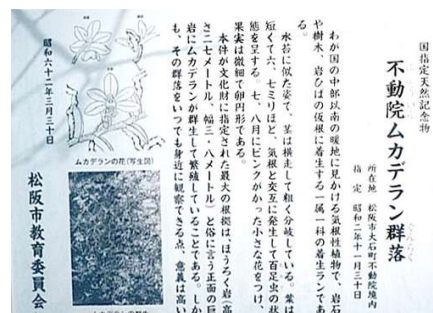 国指定天然記念物
不動院ムカデラン群落
ぐんらく
所在地 松阪市大石町不動院境内
指定 昭和二年十一月三十日
わが国の中部以南の暖地に見かける気根性植物で、岩石
や樹木、岩ひばの仮根に着生する一属一科の着生ランであ
る。
水苔に似た姿で、茎は横走して粗く分岐している。葉は
短くて六、七ミリほど、気根と交互に発生して百足虫の状
態を呈する。七、八月にピンクがかった小さな花をつけ、
果実は微細で卵円形である。
本件が文化財に指定された最大の根拠は「ほうろく岩(高
さ二七メートル、幅三・八メートル)と俗に言う正面の巨
岩にムカデランが群生して繁殖していることである。しか
も、その群落をいつでも身近に観察できる点、意義は高い
ムカデランの花(写生図)
昭和六十二年三月三十日
松阪市教育委員会